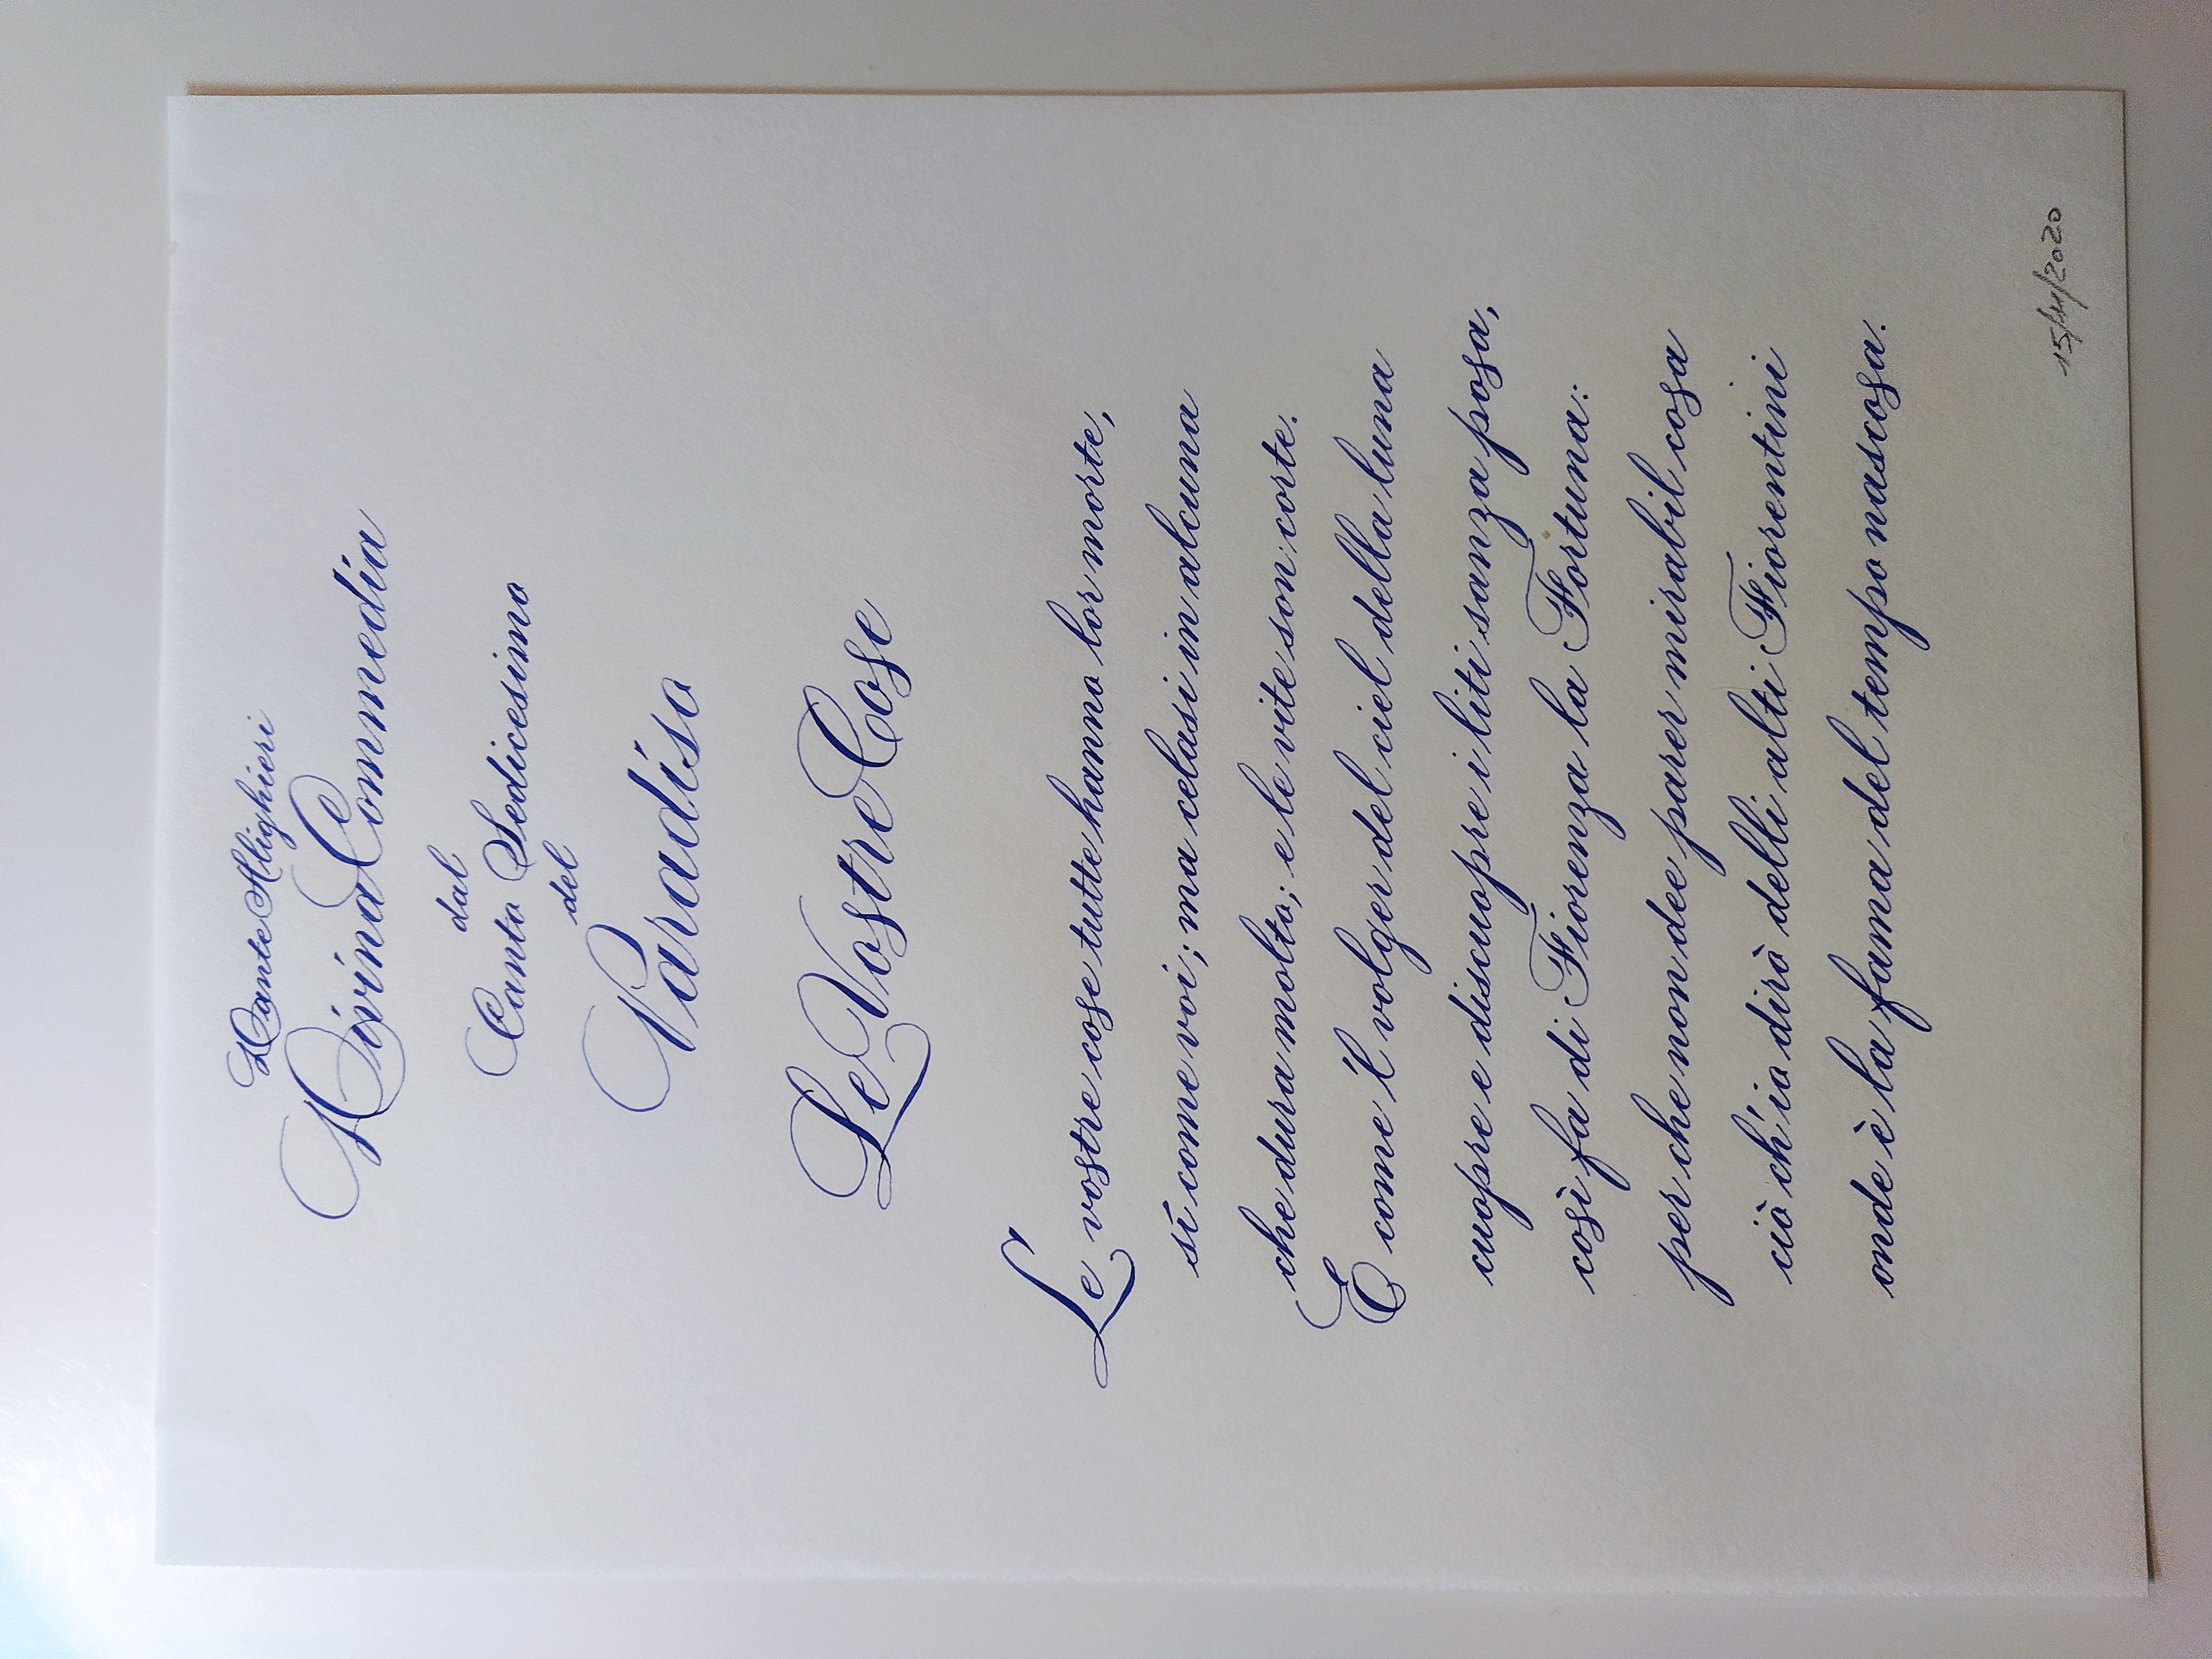 Dante Alighieri
Divina Commedia
dal
Canto Sedicesimo
del
Paradiso
Le Vostre Cose
Le vostre cose tutte hanno lor morte,
sì come voi; ma celasi in alcuna
che dura molto; e le vite son corte.
E come 'l volger del ciel della luna
cuopre e discuopre i liti sanza posa,
così fa di Fiorenza la Fortuna:
per che non dee parer mirabil cosa
ciò ch'io dirò delli alti Fiorentini
onde è la fama del tempo nascosa.
15/11/2020